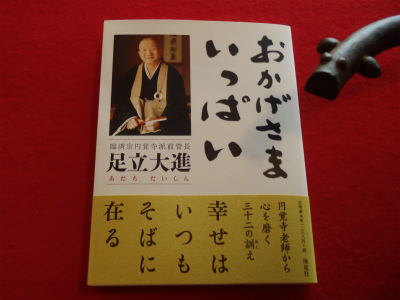 おかげさま
いっぱい
臨済宗円覚寺派前管長
足立大進
あだち だいしん
円覚寺老師から
心を磨く
三十二の訓え
幸せは
いつも
そばに
在る